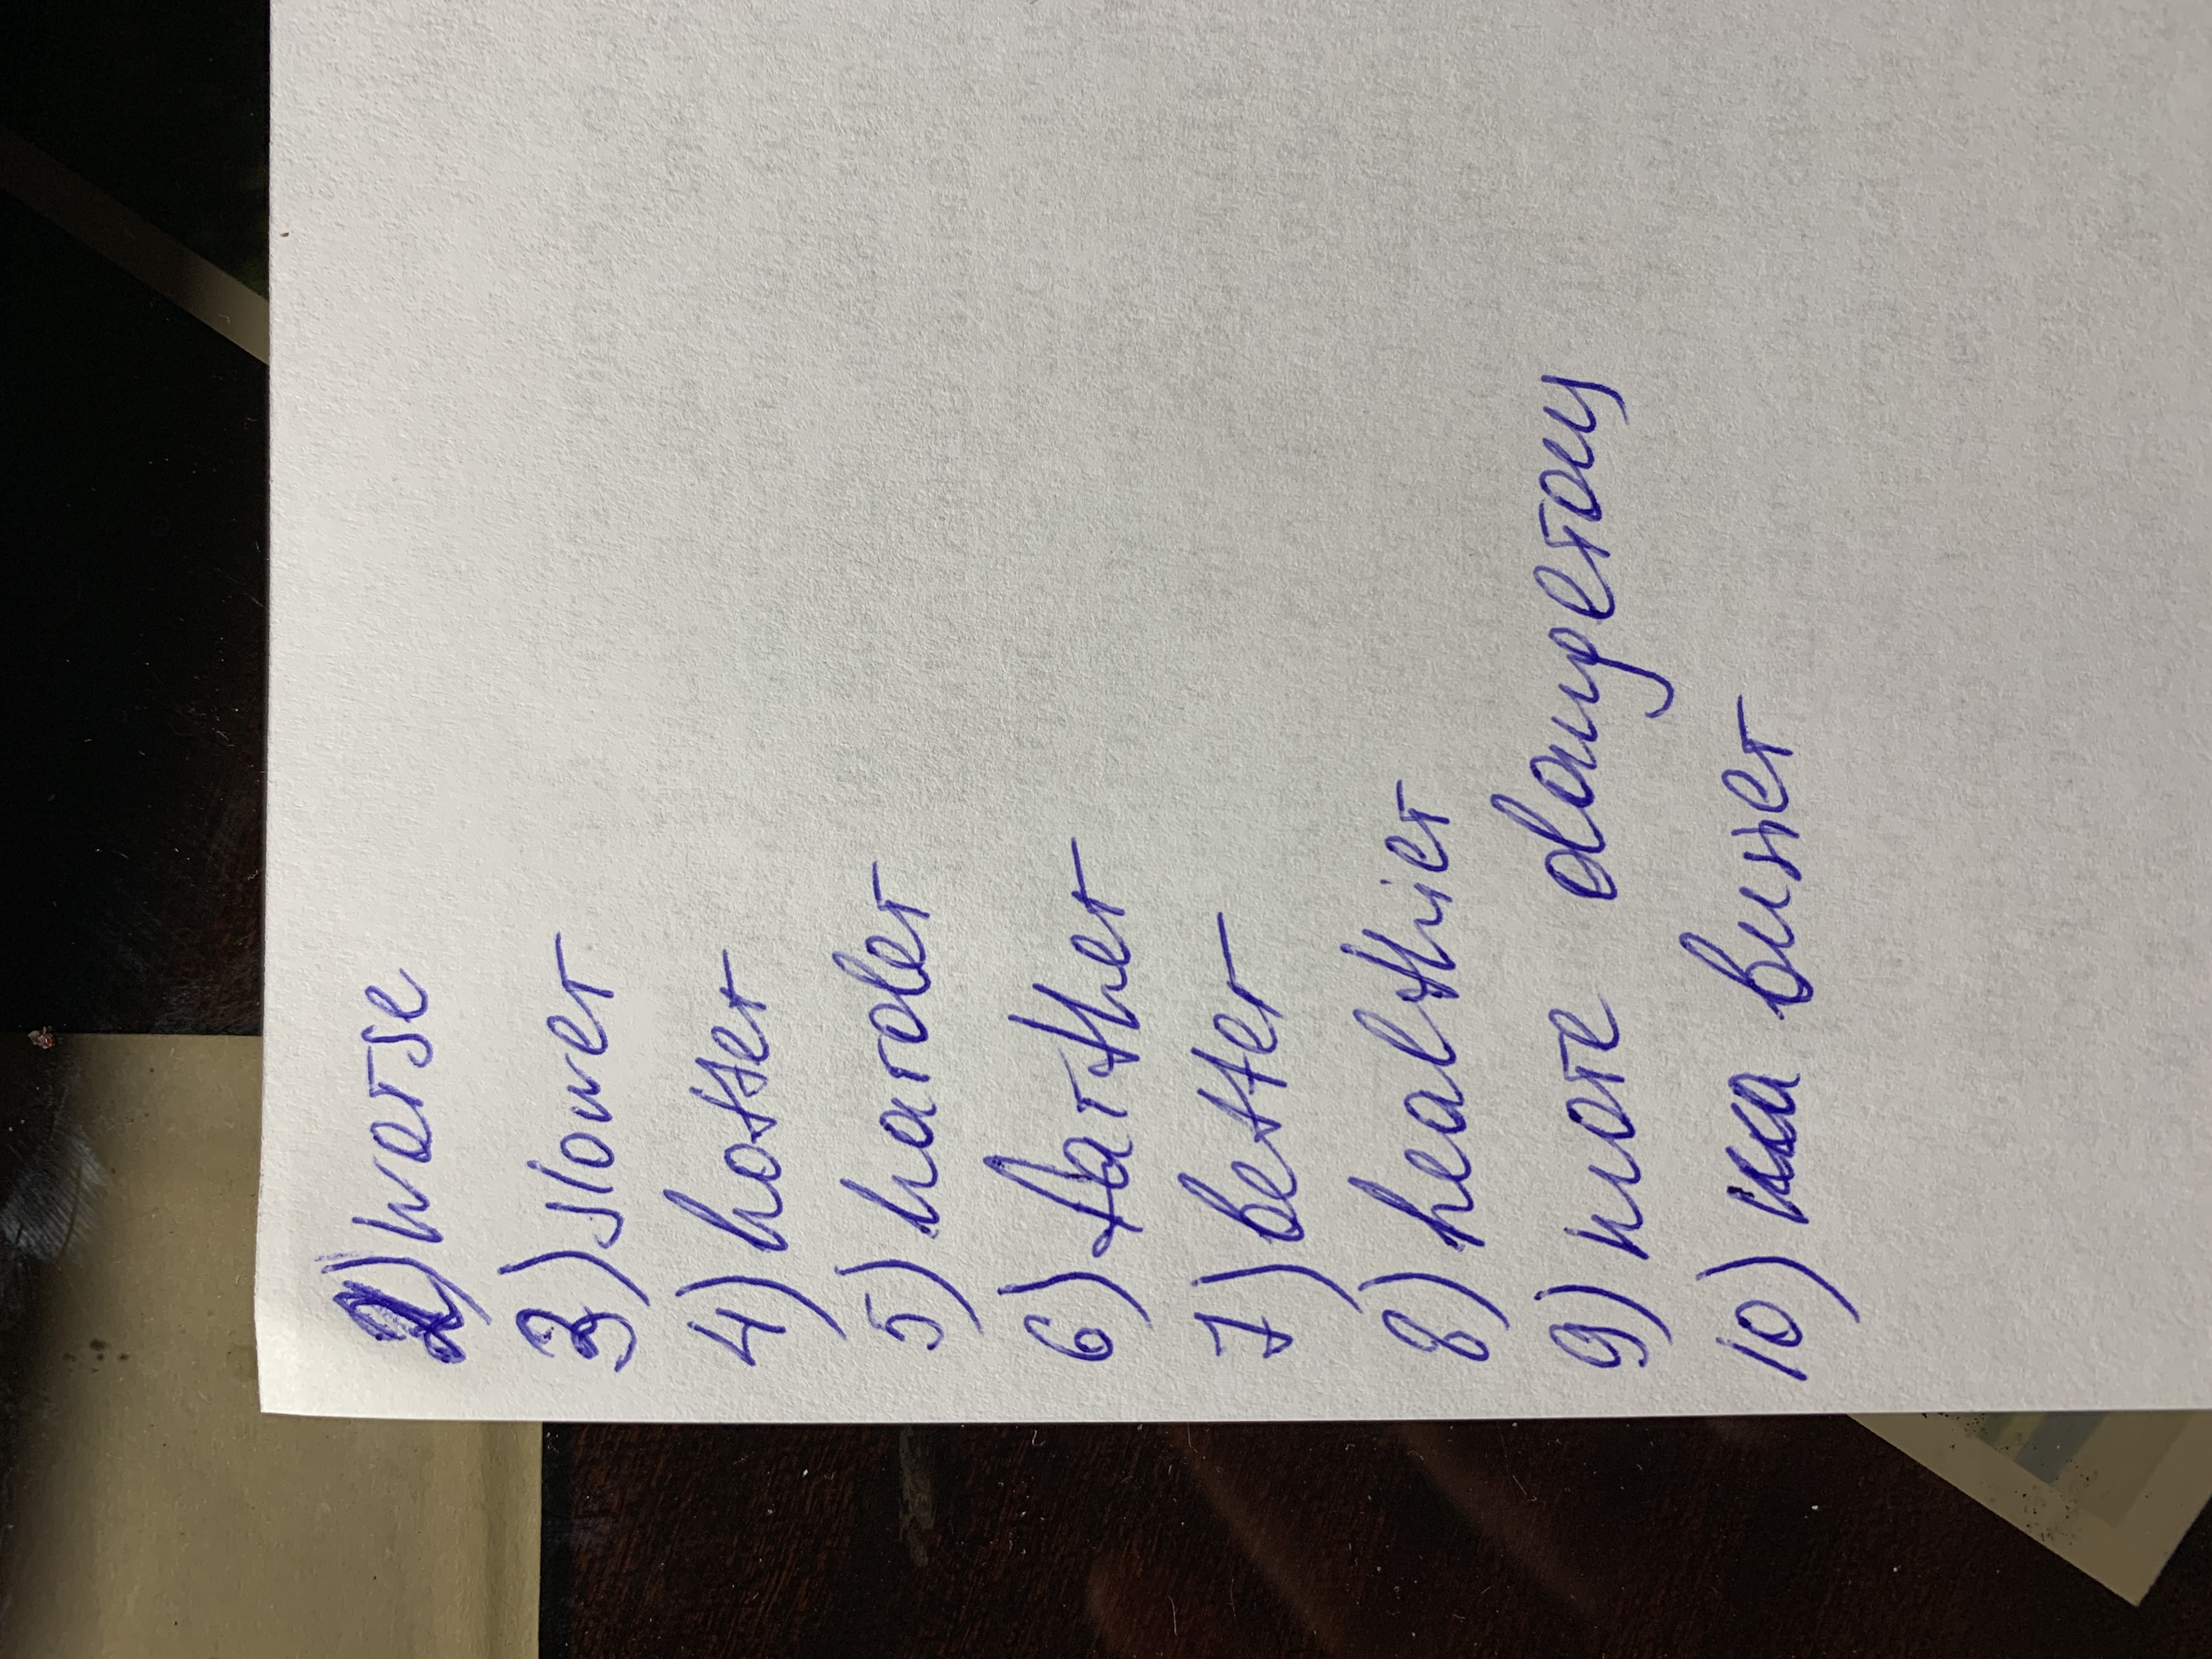 2) worse
3) slower
4) hotter
5) harder
6) farther
7) better
8) healthier
9) more dangerous
10)